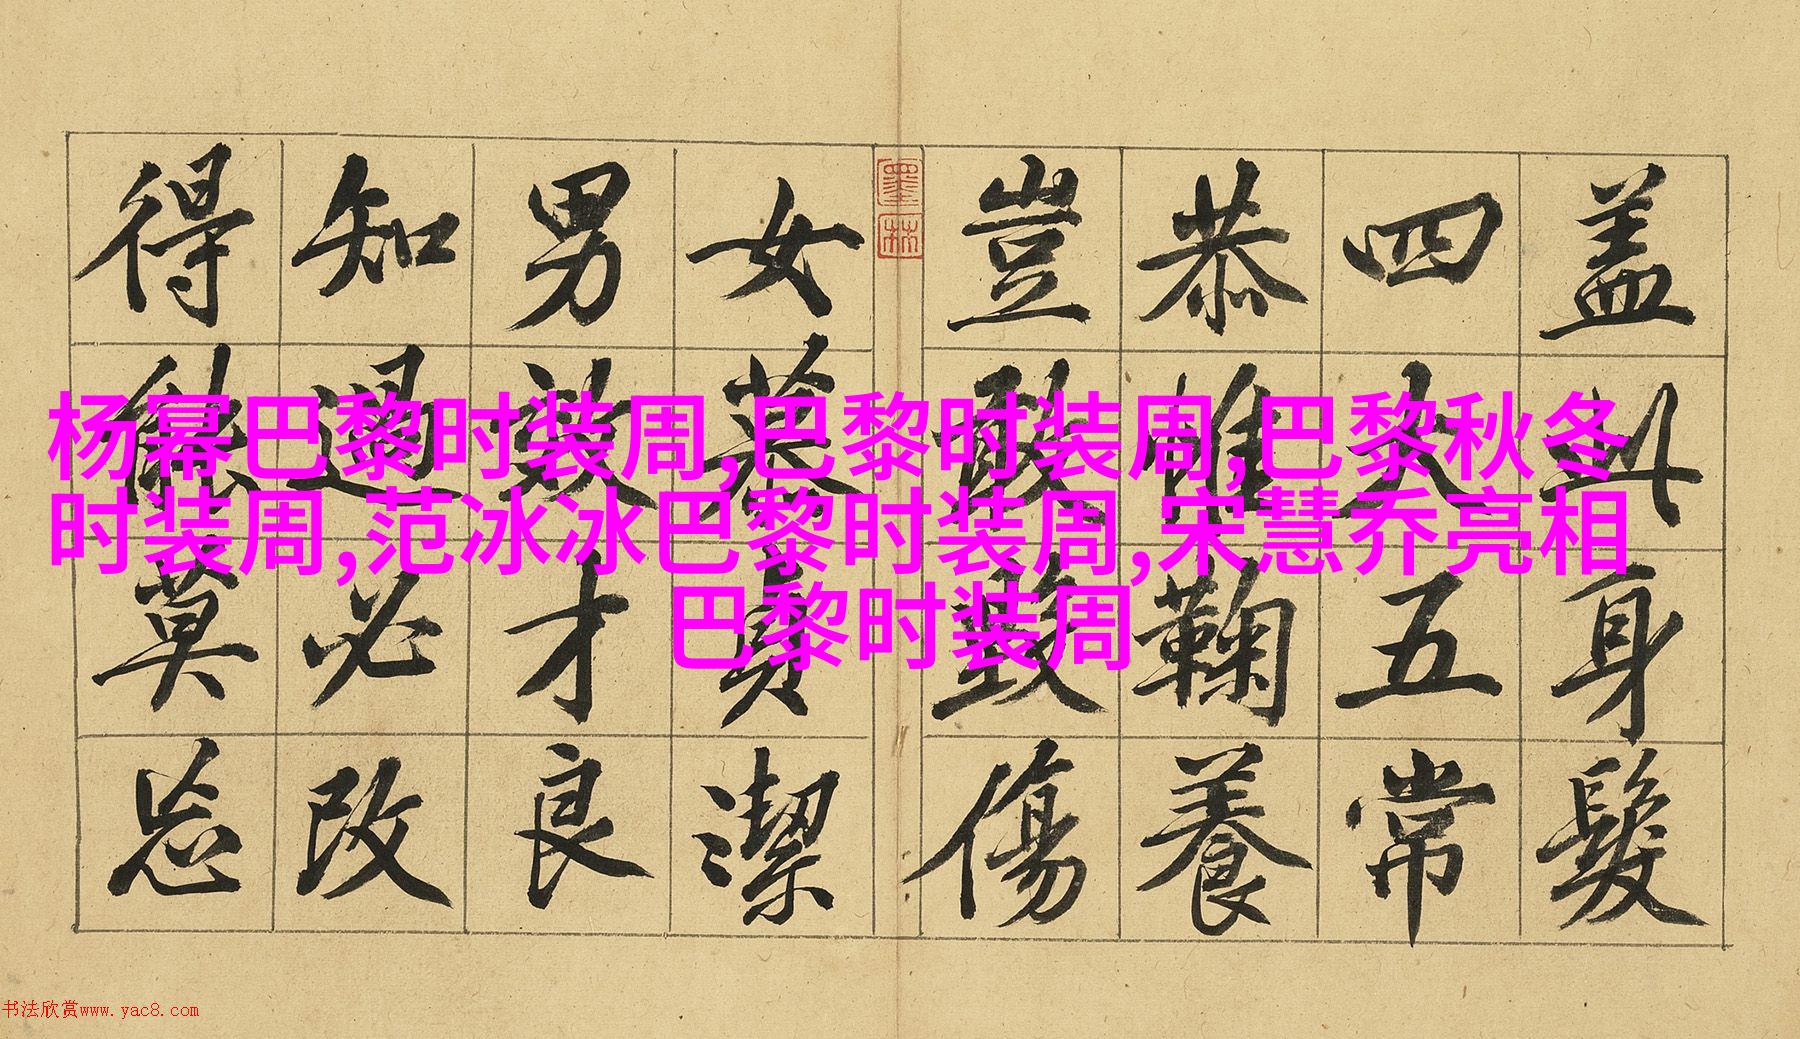 盖此身髮
四大五常
恭惟鞠養
豈敢毀傷
墨林
女慕貞潔
男效才良
知過必改
得能莫忘
杨幂巴黎时装周,巴黎时装周,巴黎秋冬
时装周,范冰冰巴黎时装周,宋慧乔亮相
巴黎时装周
书法欣赏www.yac8.com